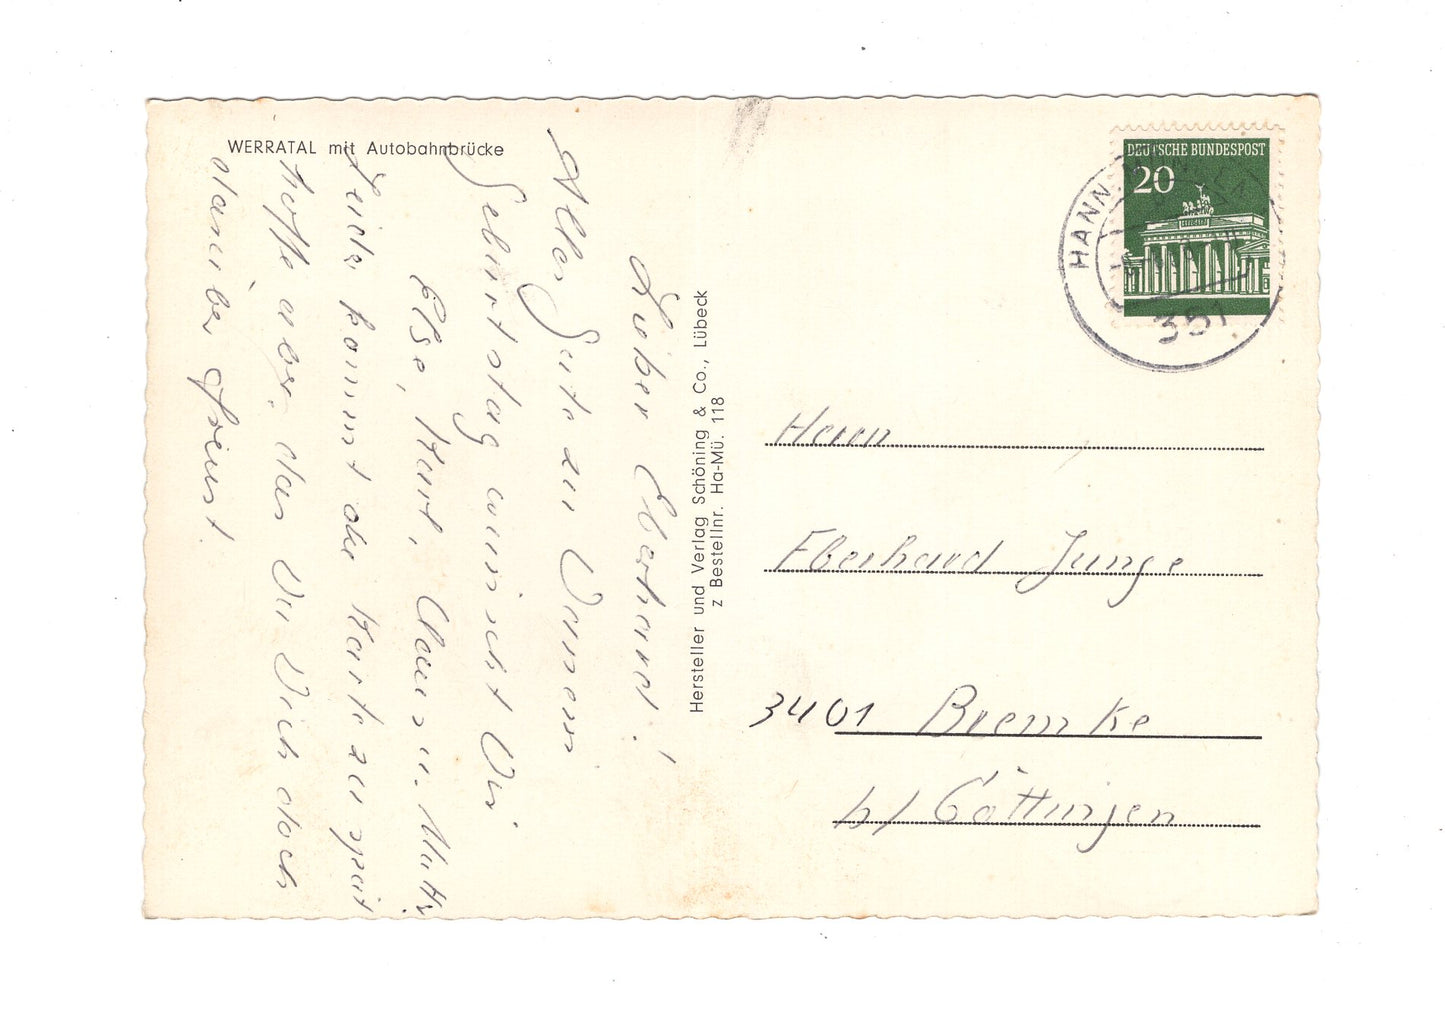 WERRATAL mit Autobahnbrücke
Lieber Eberhard!
Alles Gute zu Deinem
Geburtstag wünscht Dir
Else, Kurt, Claus u. Mutti.
Leider kommt die Karte zu spät
hoffe aber, das Du Dich doch
darüber freust.
Hersteller und Verlag Schöning & Co., Lübeck
z Bestellnr. Ha-Mü. 118
DEUTSCHE BUNDESPOST
20
HANN. MÜNDEN
351
Herrn
Eberhard Junge
3401 Bremke
b/ Göttingen